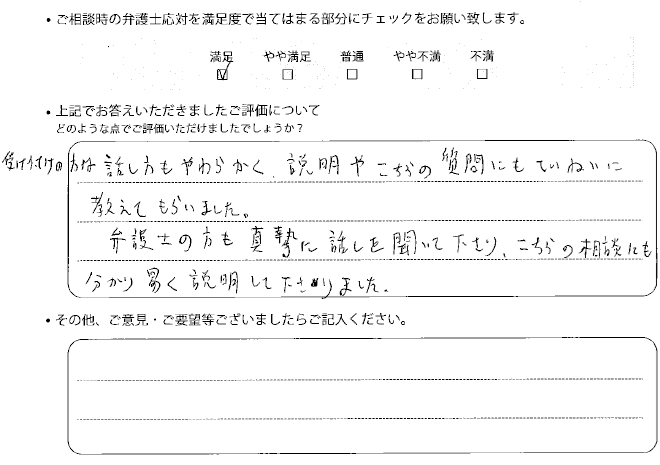 ・ご相談時の弁護士応対を満足度で当てはまる部分にチェックをお願い致します。
満足 やや満足 普通 やや不満 不満
☑ □ □ □ □
・上記でお答えいただきましたご評価について
どのような点でご評価いただけましたでしょうか?
受け付けの方は話し方もやわらかく、説明やこちらの質問にもていねいに
教えてもらいました。
弁護士の方も真摯に話しを聞いて下さり、こちらの相談にも
分かり易く説明して下さりました。
・その他、ご意見・ご要望等ございましたらご記入ください。